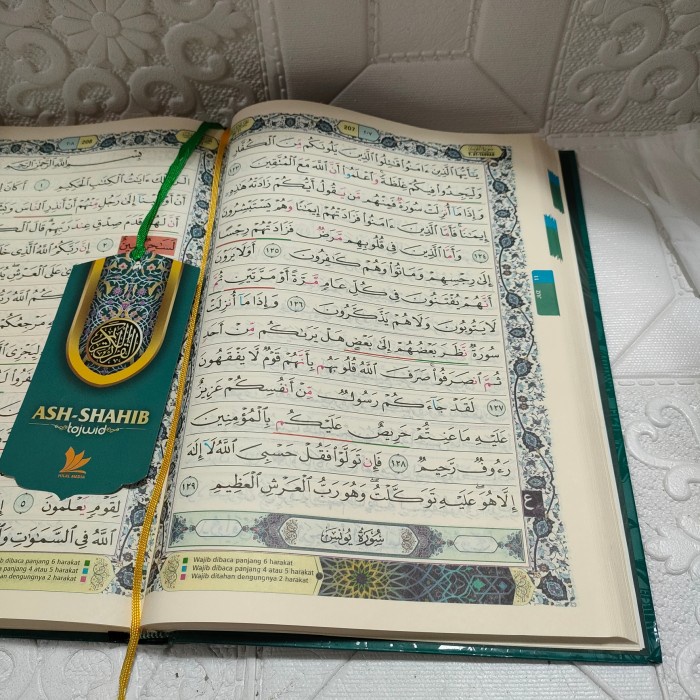 207
يَٰٓأَيُّهَا ٱلَّذِينَ ءَامَنُوا۟ قَٰتِلُوا۟ ٱلَّذِينَ يَلُونَكُم مِّنَ ٱلْكُفَّارِ
وَلْيَجِدُوا۟ فِيكُمْ غِلْظَةً وَٱعْلَمُوٓا۟ أَنَّ ٱللَّهَ مَعَ ٱلْمُتَّقِينَ ١٢٣
وَإِذَا مَآ أُنزِلَتْ سُورَةٌ فَمِنْهُم مَّن يَقُولُ أَيُّكُمْ زَادَتْهُ هَٰذِهِۦٓ
إِيمَٰنًا فَأَمَّا ٱلَّذِينَ ءَامَنُوا۟ فَزَادَتْهُمْ إِيمَٰنًا وَهُمْ يَسْتَبْشِرُونَ
١٢٤ وَأَمَّا ٱلَّذِينَ فِى قُلُوبِهِم مَّرَضٌ فَزَادَتْهُمْ رِجْسًا
إِلَىٰ رِجْسِهِمْ وَمَاتُوا۟ وَهُمْ كَٰفِرُونَ ١٢٥ أَوَلَا يَرَوْنَ
أَنَّهُمْ يُفْتَنُونَ فِى كُلِّ عَامٍ مَّرَّةً أَوْ مَرَّتَيْنِ ثُمَّ
لَا يَتُوبُونَ وَلَا هُمْ يَذَّكَّرُونَ ١٢٦ وَإِذَا مَآ أُنزِلَتْ
سُورَةٌ نَّظَرَ بَعْضُهُمْ إِلَىٰ بَعْضٍ هَلْ يَرَىٰكُم مِّنْ أَحَدٍ
ثُمَّ ٱنصَرَفُوا۟ صَرَفَ ٱللَّهُ قُلُوبَهُم بِأَنَّهُمْ قَوْمٌ لَّا يَفْقَهُونَ
١٢٧ لَقَدْ جَآءَكُمْ رَسُولٌ مِّنْ أَنفُسِكُمْ عَزِيزٌ
عَلَيْهِ مَا عَنِتُّمْ حَرِيصٌ عَلَيْكُم بِٱلْمُؤْمِنِينَ
رَءُوفٌ رَّحِيمٌ ١٢٨ فَإِن تَوَلَّوْا۟ فَقُلْ حَسْبِىَ ٱللَّهُ لَآ إِلَٰهَ
إِلَّا هُوَ عَلَيْهِ تَوَكَّلْتُ وَهُوَ رَبُّ ٱلْعَرْشِ ٱلْعَظِيمِ ١٢٩
ع
سُورَةُ يُونُسَ
Wajib dibaca panjang 6 harakat
Wajib dibaca panjang 4 atau 5 harakat
Wajib ditahan dengungnya 2 harakat
11
208
بِسْمِ ٱللَّهِ ٱلرَّحْمَٰنِ ٱلرَّحِيمِ
تِلْكَ ءَايَٰتُ ٱلْكِتَٰبِ ٱلْحَكِيمِ ١ أَكَانَ
أَنْ أَوْحَيْنَآ إِلَىٰ رَجُلٍ مِّنْهُمْ أَنْ أَنذِرِ ٱلنَّاسَ
أَنَّ لَهُمْ قَدَمَ صِدْقٍ عِندَ رَبِّهِمْ قَالَ
٢ إِنَّ رَبَّكُمُ ٱللَّهُ ٱلَّذِى
لِقَوْمٍ يَعْلَمُونَ ٥
ٱللَّهُ فِى ٱلسَّمَٰوَٰتِ
dibaca panjang 6 harakat
panjang 4 atau 5 harakat
dengungnya 2 harakat
ASH-SHAHIB
tajwid
HILAL MEDIA